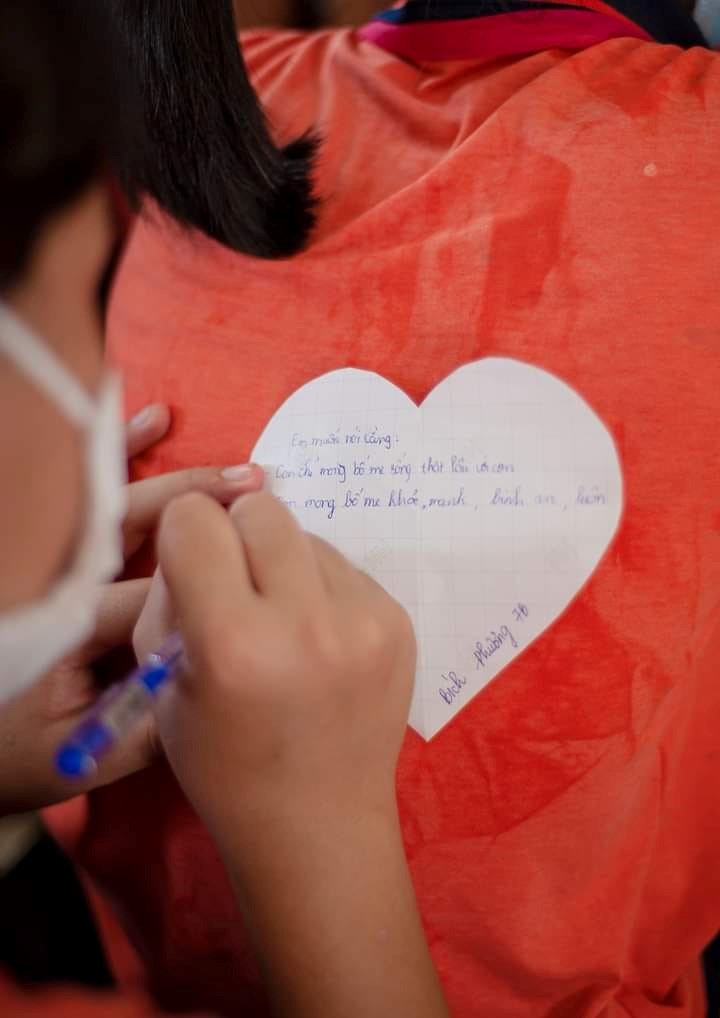 Em muốn nói rằng:
Con chỉ mong bố mẹ sống thật lâu với con
Con mong bố mẹ khỏe, mạnh, bình an, luôn
Bích Phường 7B